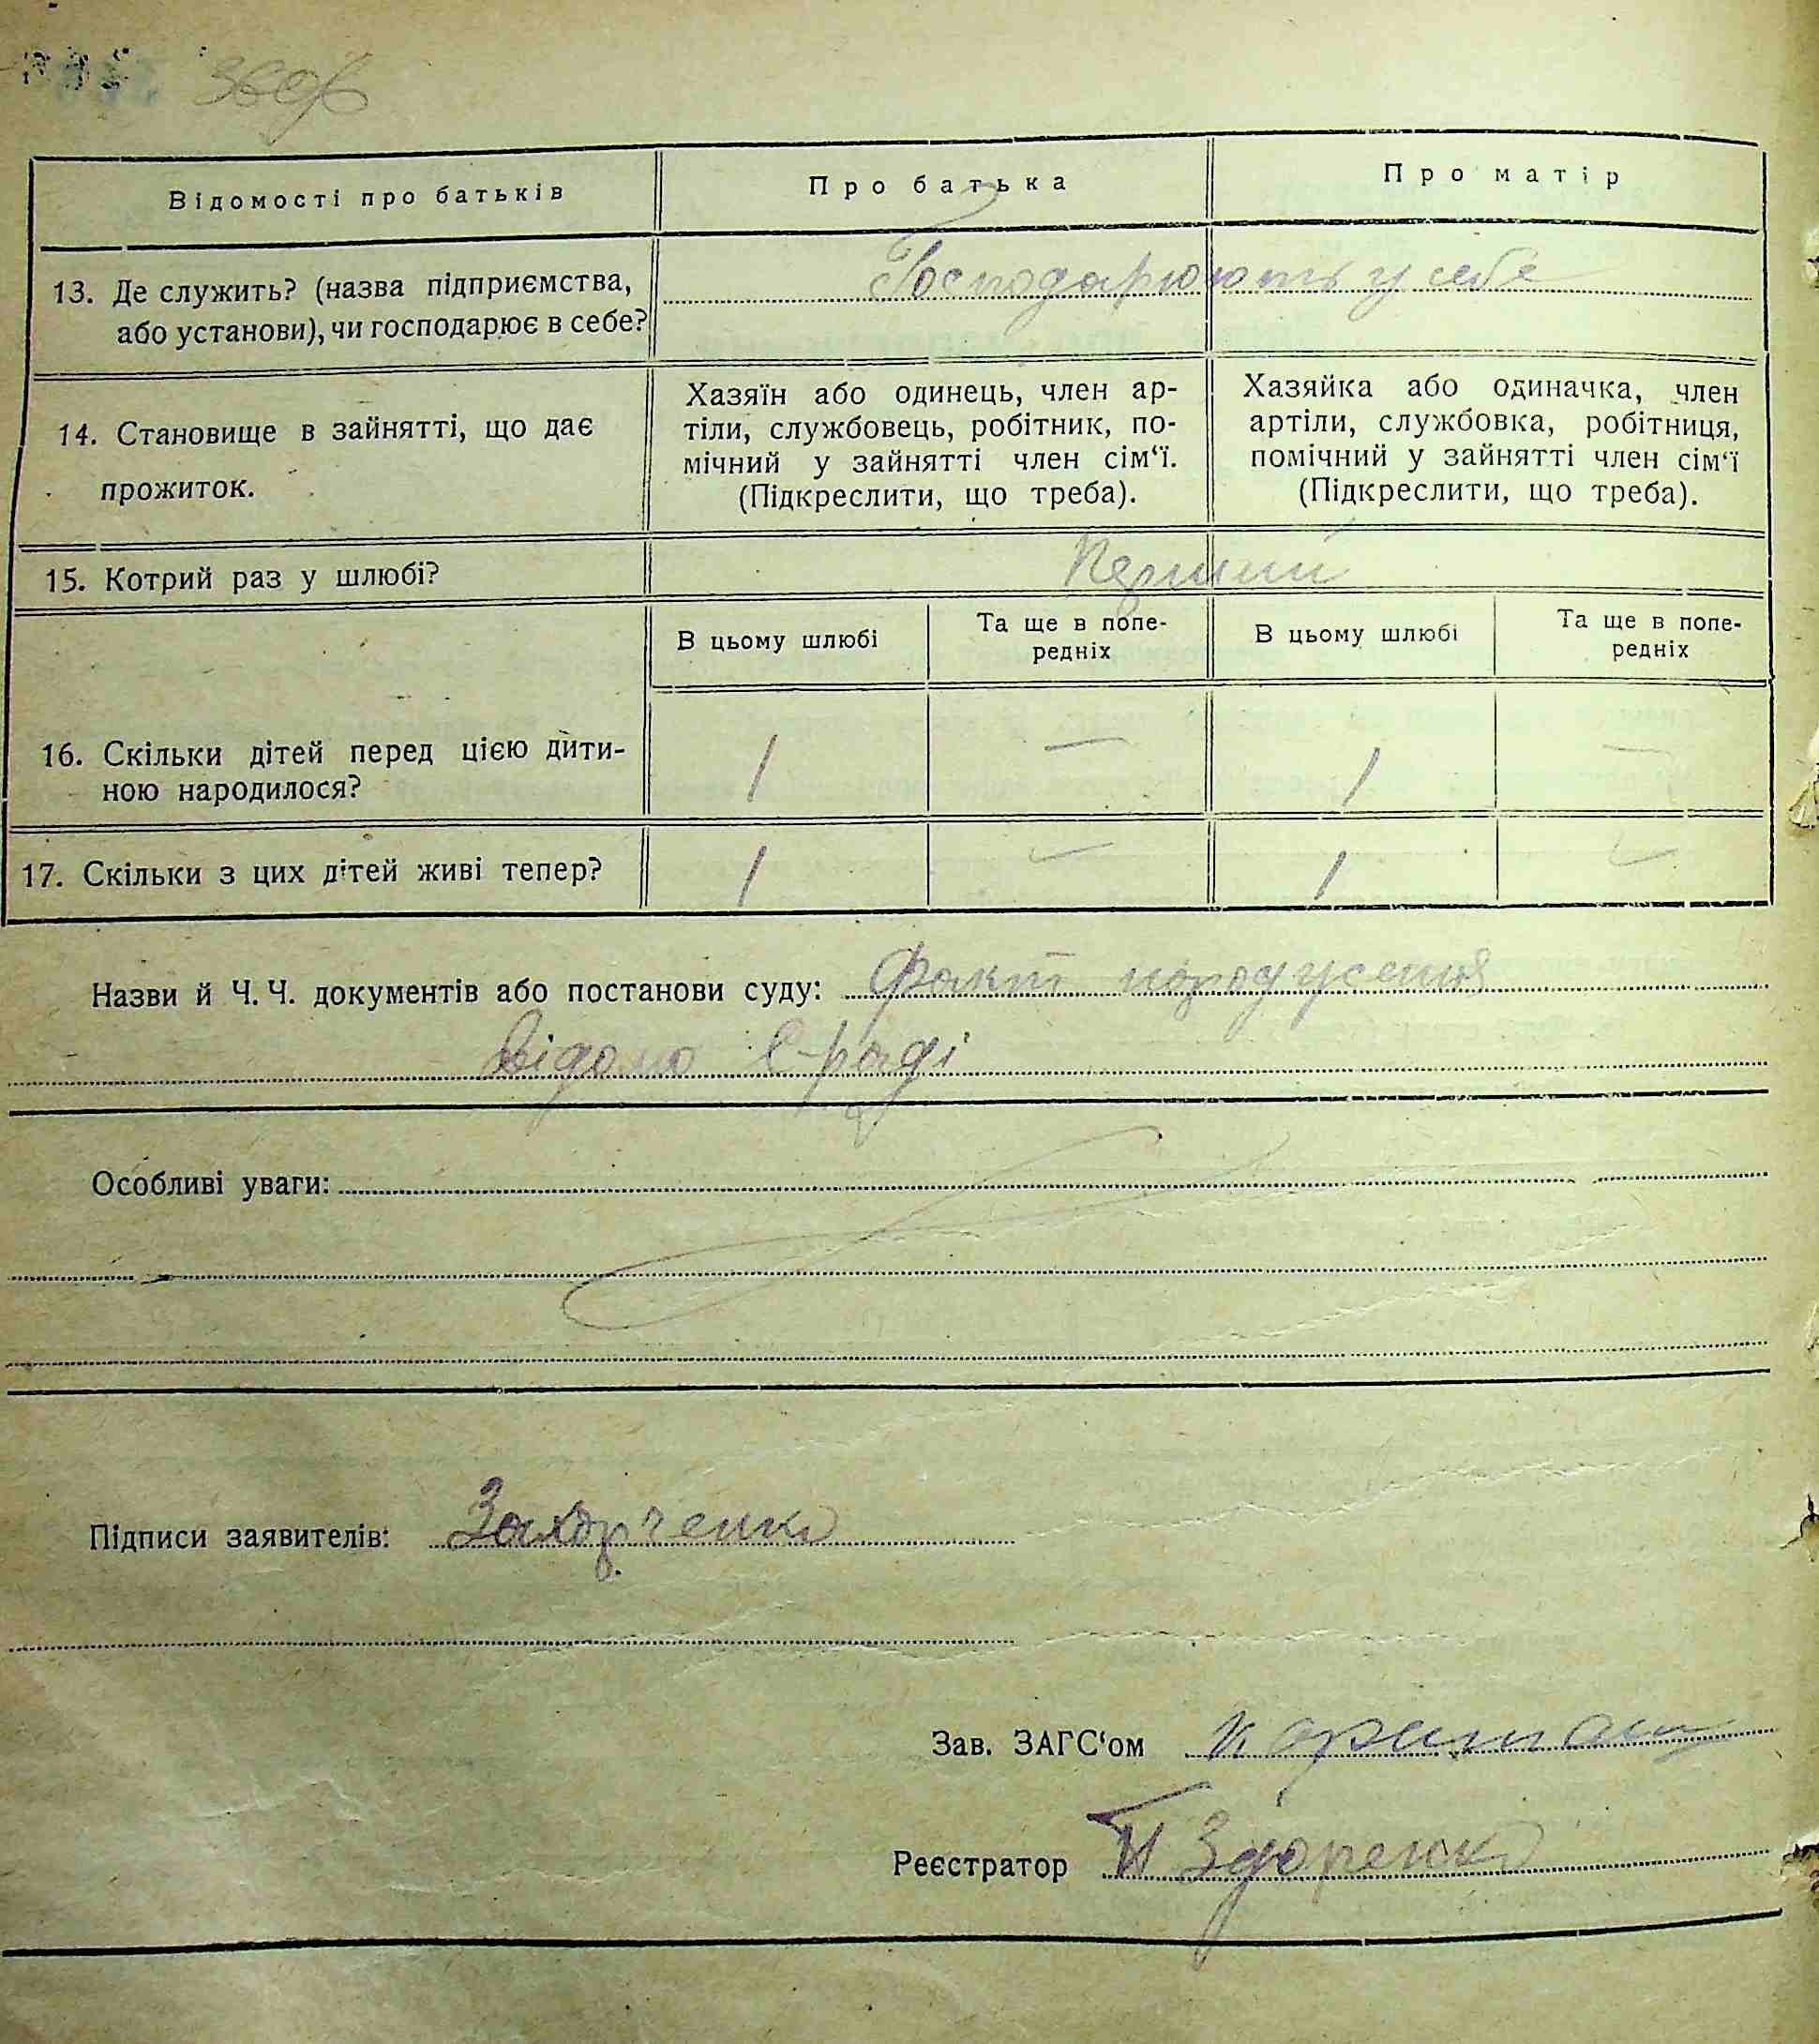 369б
Відомості про батьків
Про батька
Про матір
13. Де служить? (назва підприємства,
або установи), чи господарює в себе?
Господарюють у себе
14. Становище в зайнятті, що дає
прожиток.
Хазяїн або одинець, член ар-
тіли, службовець, робітник, по-
мічний у зайнятті член сім‘ї.
(Підкреслити, що треба).
Хазяйка або одиначка, член
артіли, службовка, робітниця,
помічний у зайнятті член сім‘ї
(Підкреслити, що треба).
15. Котрий раз у шлюбі?
Перший
В цьому шлюбі
Та ще в попе-
редніх
В цьому шлюбі
Та ще в попе-
редніх
16. Скільки дітей перед цією дити-
ною народилося?
1 — 1 —
17. Скільки з цих дітей живі тепер?
1 — 1 —
Назви й Ч. Ч. документів або постанови суду: Факт народження
відомо с-раді
Особливі уваги:
Підписи заявителів: Захарченко
Зав. ЗАГС‘ом
Реєстратор Здоренко